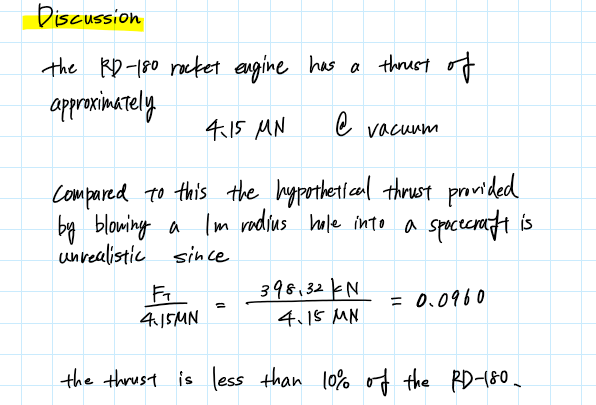 Discussion
the RD-180 rocket engine has a thrust of
approximately
4.15 MN @ vacuum
Compared to this the hypothetical thrust provided
by blowing a 1m radius hole into a spacecraft is
unrealistic since
F_T / 4.15MN = 398.32 kN / 4.15 MN = 0.0960
the thrust is less than 10% of the RD-180.